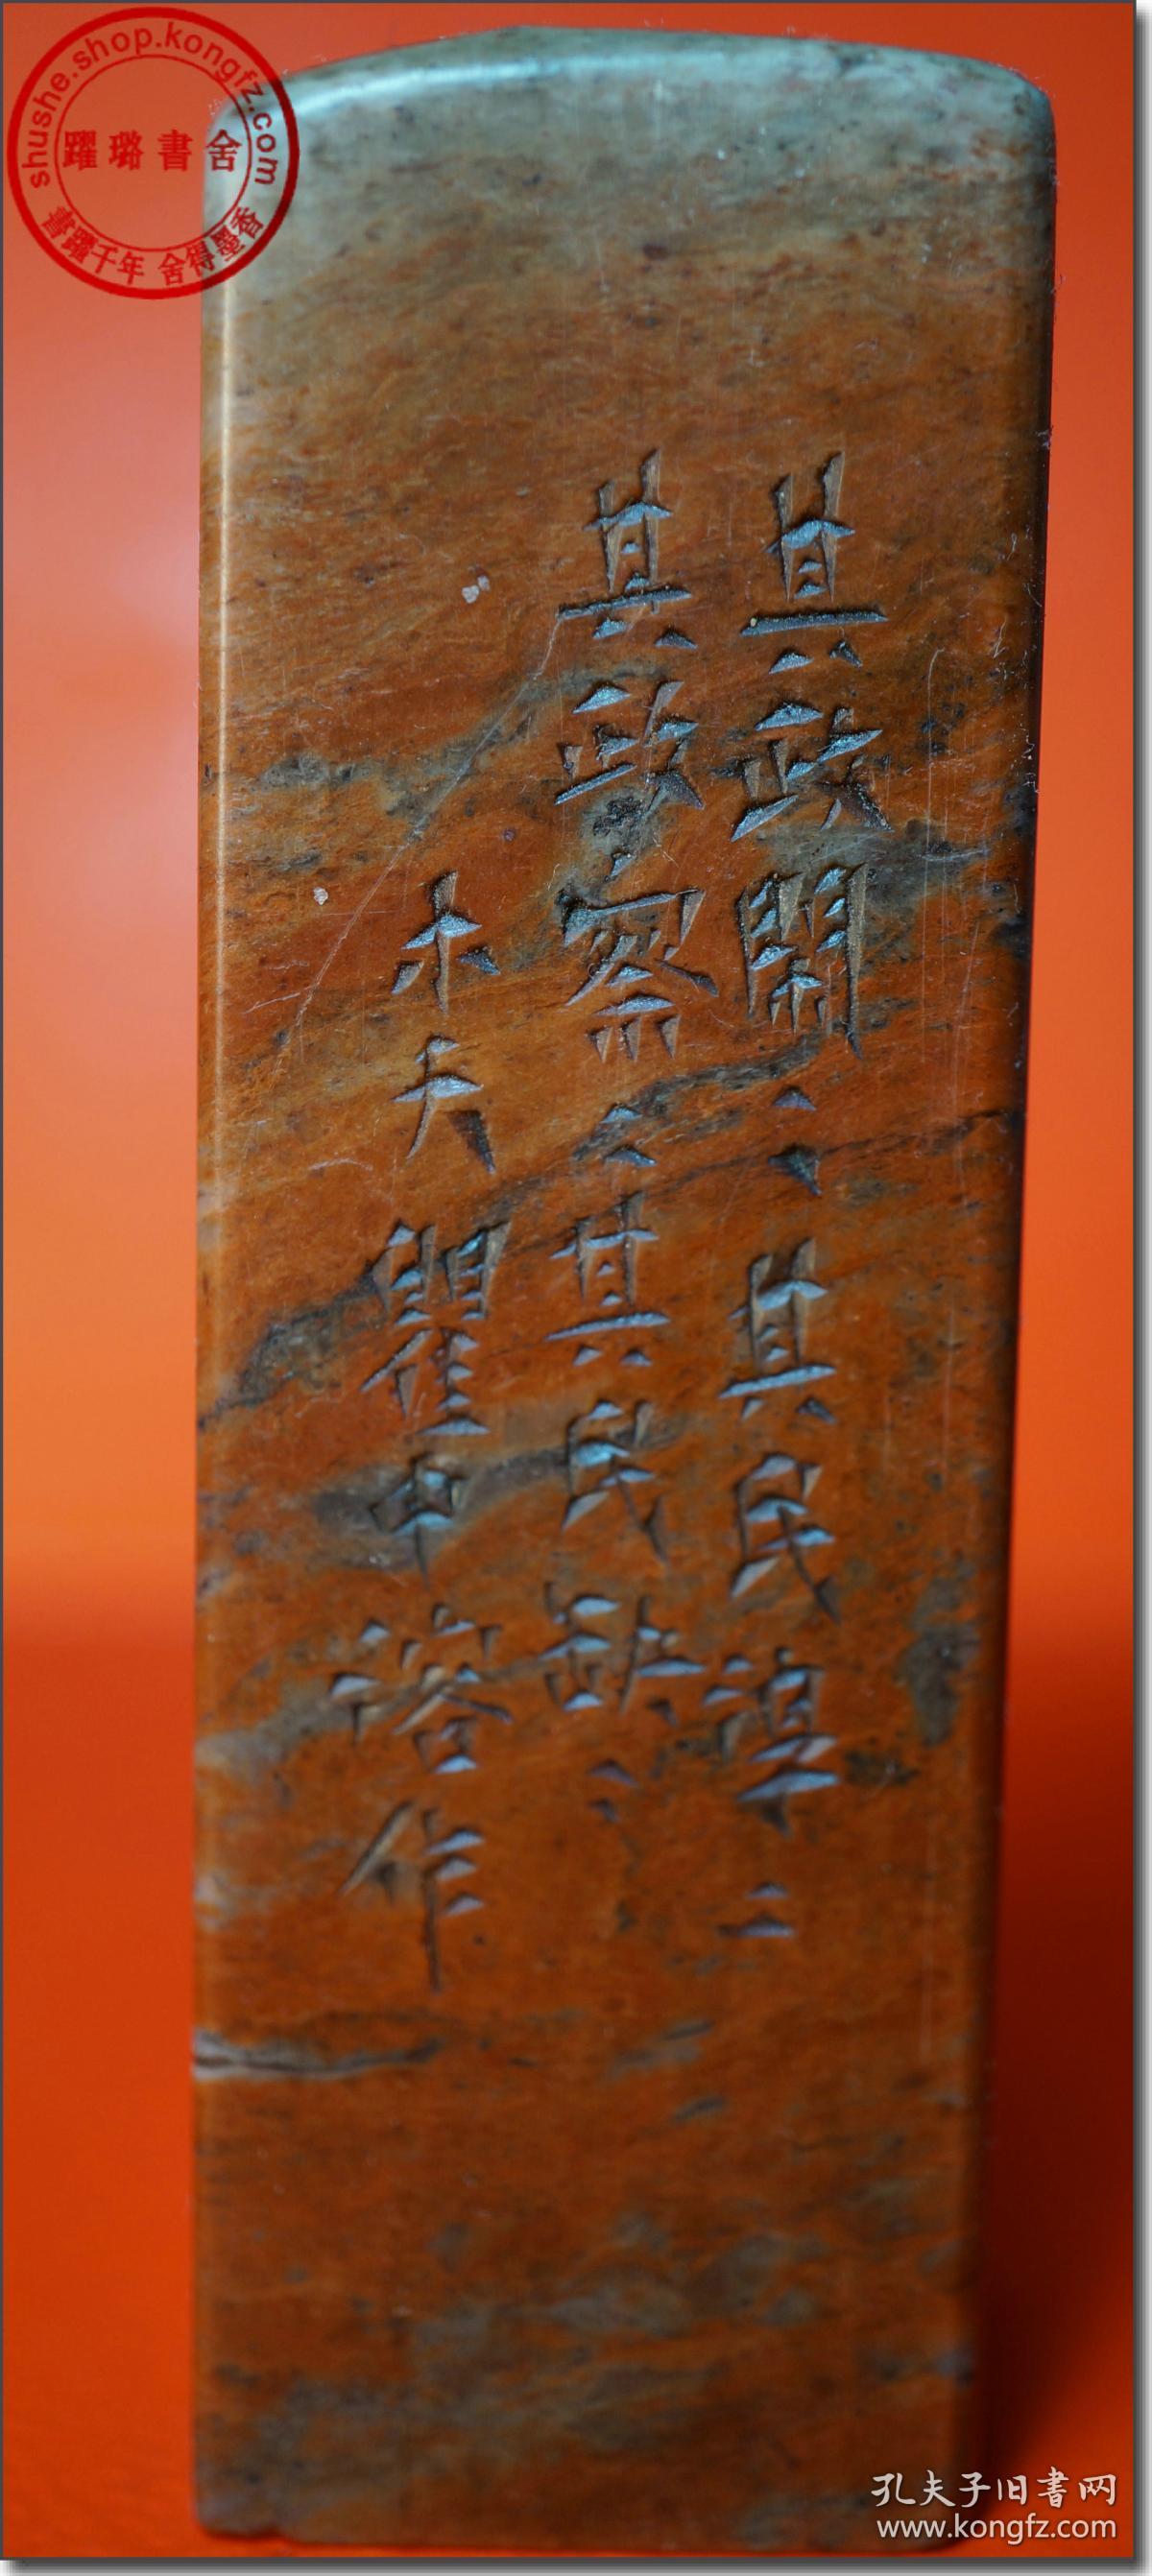 其政悶＝其民淳＝
其政察＝其民缺＝
木夫瞿中溶作
shushe.shop.kongfz.com
躍璐書舍
書躋千年 舍得墨香
孔夫子旧書网
www.kongfz.com